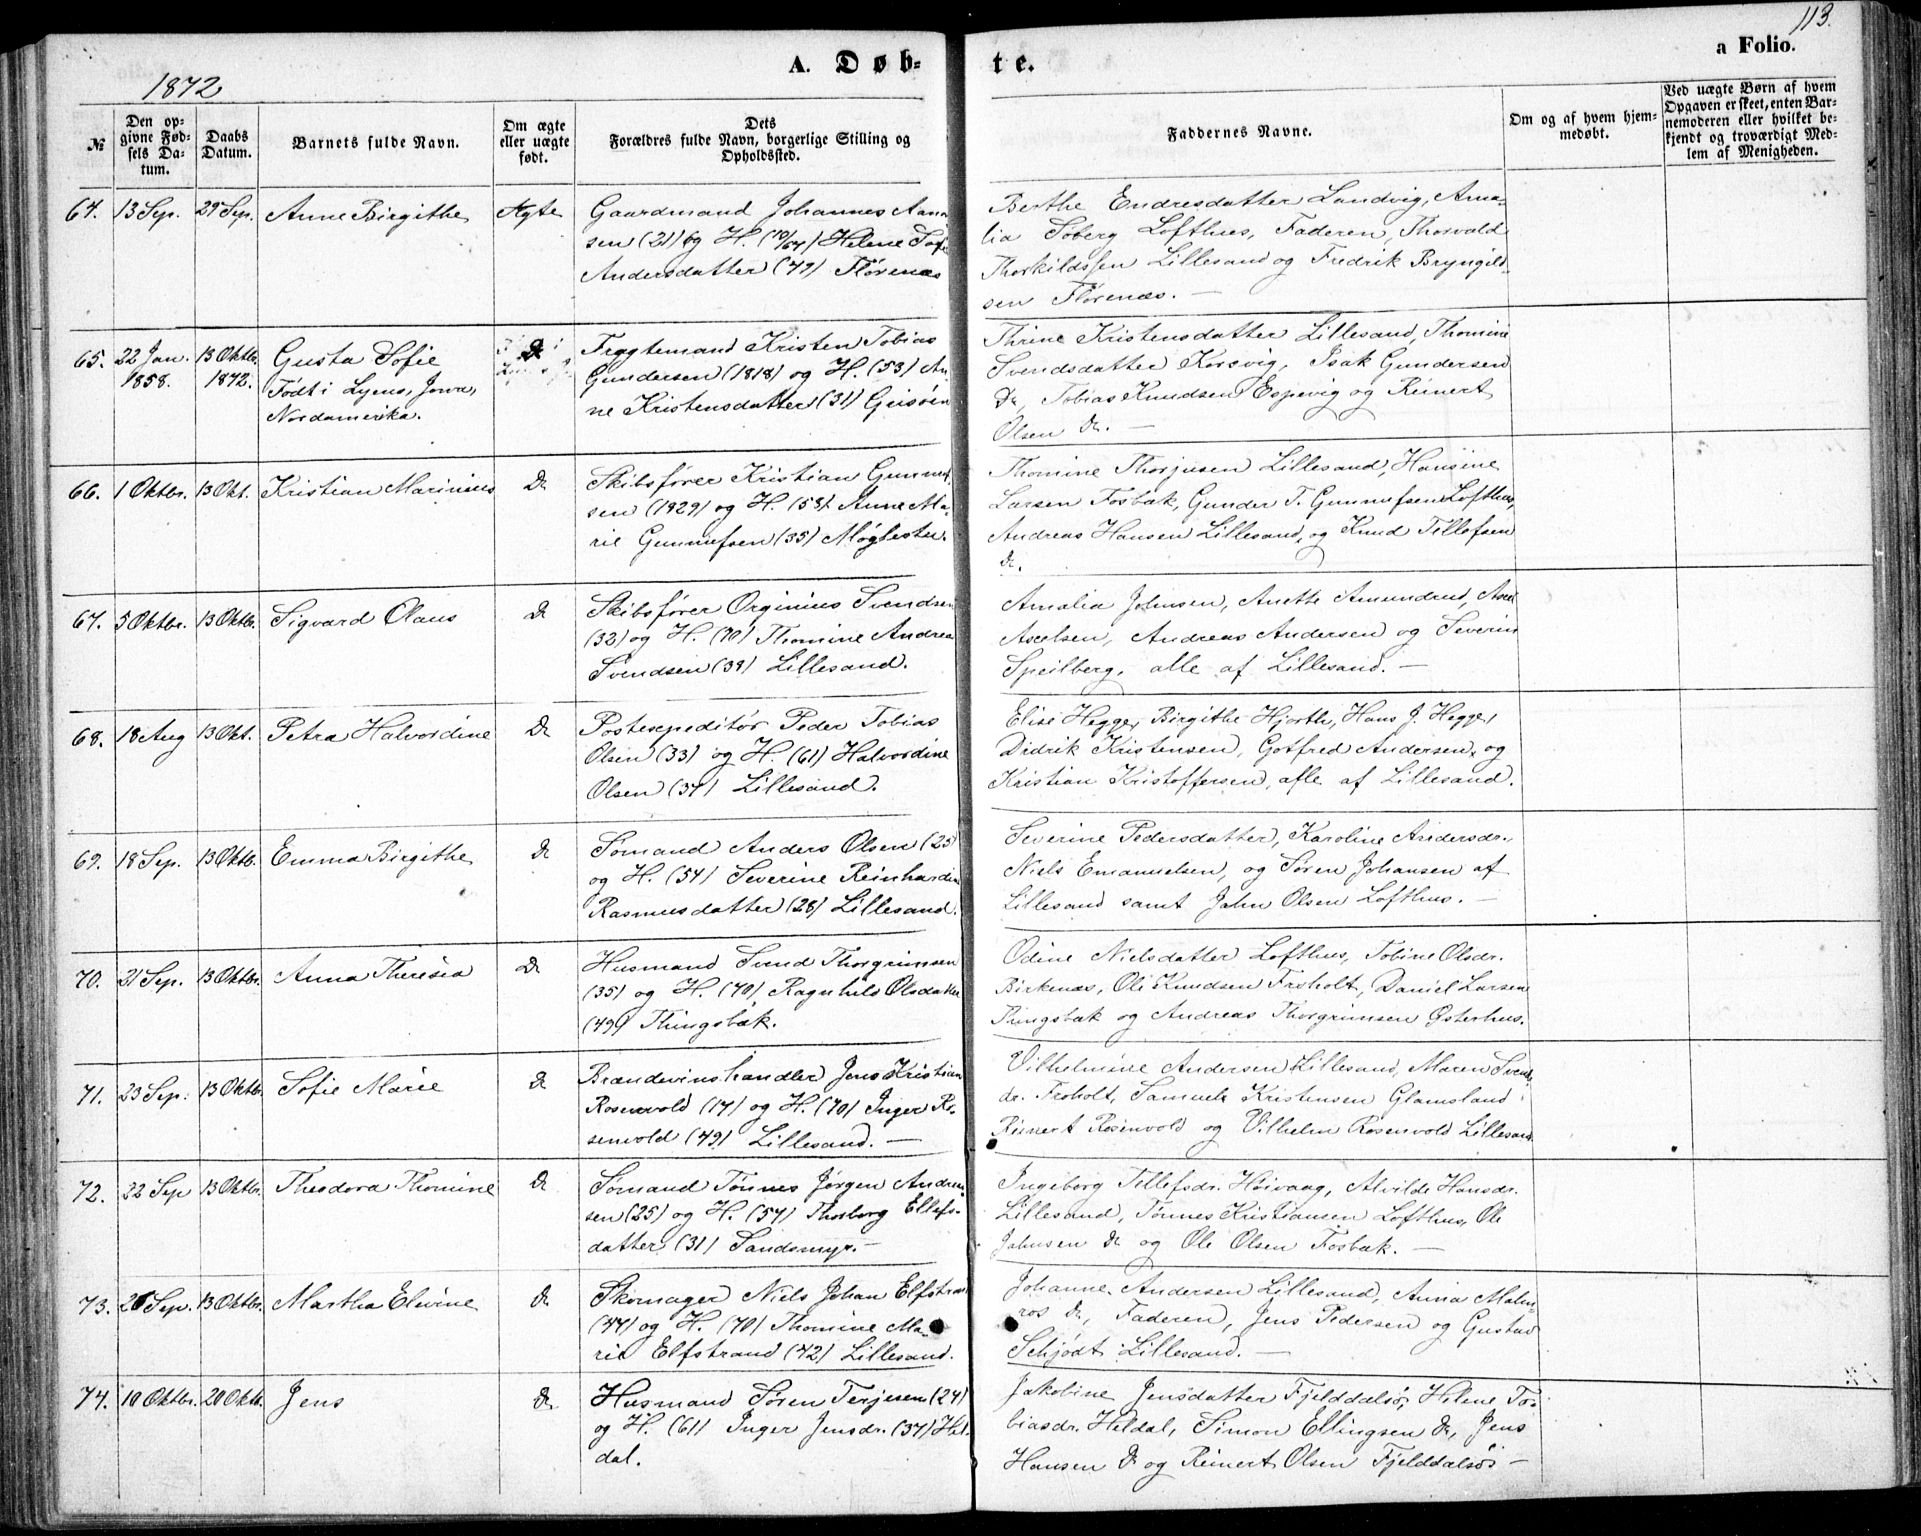 113.
A. Døb-
te.
a Folio.
1872
№
Den op-
givne Fød-
sels Da-
tum.
Daabs
Datum.
Barnets fulde Navn.
Om ægte
eller uægte
født.
Dets
Forældres fulde Navn, borgerlige Stilling og
Opholdssted.
Faddernes Navne.
Om og af hvem hjem-
medøbt.
Ved uægte Børn af hvem
Opgaven er skeet, enten Bar-
nemoderen eller hvilket be-
kjendt og troværdigt Med-
lem af Menigheden.
64. 13 Sep. 29 Sep. Anne Birgithe Ægte
Gaardmand Johannes
sen (21) og H. (10/64) Helene
Andersdatter (49) Flørenæs
Berthe Endresdatter Landvig, Ama-
lia Soberg Lofthus, Faderen, Thorvald
Thorkildssen Lillesand og Fredrik Bryngild-
sen Flørenæs. —
65. 22 Jan. 13 Oktbr. Gusta Sofie D
1858. 1872.
Født i Lyons, Jowa,
Nordamerika.
Kristen Tobias
Gundersen (1818) og H. (53) An-
ne Kristensdatter (31) Grisøen
Thrine Kristensdatter Lillesand, Thomine
Svendsdatter Korsvig, Isak Gundersen
Do, Tobias Knudsen Espevig og Reinert
Olsen Do. —
66. 1 Oktbr. 13 Okt. Kristian Marinius Do
Skibsfører Kristian Gunnuf-
sen (1829) og H. (58) Anne Ma-
rie Gunnufsen (35) Møglestu.
Thomine Thorjusen Lillesand, Hansine
Larsen Fosbæk, Gunder T. Gunnufsen Lofthus,
Andreas Hansen Lillesand, og Knud Tellefsen
Do.
67. 5 Oktbr. 13 Oktbr. Sigvard Olaus Do
Skibsfører Orginius Svendsen
(32) og H. (70) Thomine Andrea
Svendsen (38) Lillesand.
Amalia Johnsen, Anette Amundrud, Axel
Axelsen, Andreas Andersen og Severin
Speilberg, alle af Lillesand. —
68. 18 Aug 13 Okt. Petra Halvordine Do
Postexpeditør Peder Tobias
Olsen (33) og H. (61) Halvordine
Olsen (34) Lillesand.
Elise Hegge, Birgithe Hjorth, Hans J. Hegge,
Didrik Kristensen, Gotfred Andersen, og
Kristian Kristoffersen, alle af Lillesand.
69. 18 Sep. 13 Oktb. Emma Birgithe Do
Sømand Anders Olsen (25)
og H. (54) Severine Reinhardine
Rasmusdatter (28) Lillesand.
Severine Pedersdatter, Karoline Andersdr.,
Niels Emanuelsen, og Søren Johansen af
Lillesand samt John Olsen Lofthus. —
70. 21 Sep. 13 Oktbr. Anna Theresia Do
Husmand Svend Thorgrimsen
(35) og H. (70) Ragnhild Olsdatter
(49) Thingsbæk.
Odine Nielsdatter Lofthus, Tobine Olsdr.
Birkenæs, Ole Knudsen Frøholt, Daniel Larsen
Thingsbæk og Andreas Thorgrimsen Østerhus.
71. 23 Sep. 13 Oktbr. Sofie Marie Do
Brændevinshandler Jens Kristian
Rosenvold (17) og H. (70) Inger Ro-
senvold (49) Lillesand. —
Vilhelmine Andersen Lillesand, Maren Svends-
dr. Frøholt, Samuel Kristensen Glamsland
Reinert Rosenvold og Vilhelm Rosenvold Lillesand
72. 22 Sep 13 Oktbr. Theodora Thomine Do
Sømand Tønnes Jørgen Andrea-
sen (25) og H. (54) Thorborg Ellefs-
datter (31) Sandsmyr. —
Ingeborg Tellefsdr. Høivaag, Alvilde Hansdr.
Lillesand, Tønnes Kristiansen Lofthus, Ole
Johnsen Do og Ole Olsen Fosbæk. —
73. 26 Sep. 13 Oktbr. Martha Elevine Do
Skomager Niels Johan Elfstrand
(44) og H. (70) Thomine Ma-
rie Elfstrand (42) Lillesand.
Johanne Andersen Lillesand, Anna Malm-
ros Do, Faderen, Jens Pedersen og Gustav
Schjødt Lillesand. —
74. 10 Oktbr. 20 Oktb. Jens Do
Husmand Søren Terjesen (24)
og H. (61) Inger Jensdr. (37) Hel-
dal.
Jakobine Jensdatter Fjelddalsø, Helene To-
biasdr. Heldal, Simon Ellingsen Do, Jens
Hansen Do og Reinert Olsen Fjelddalsø —